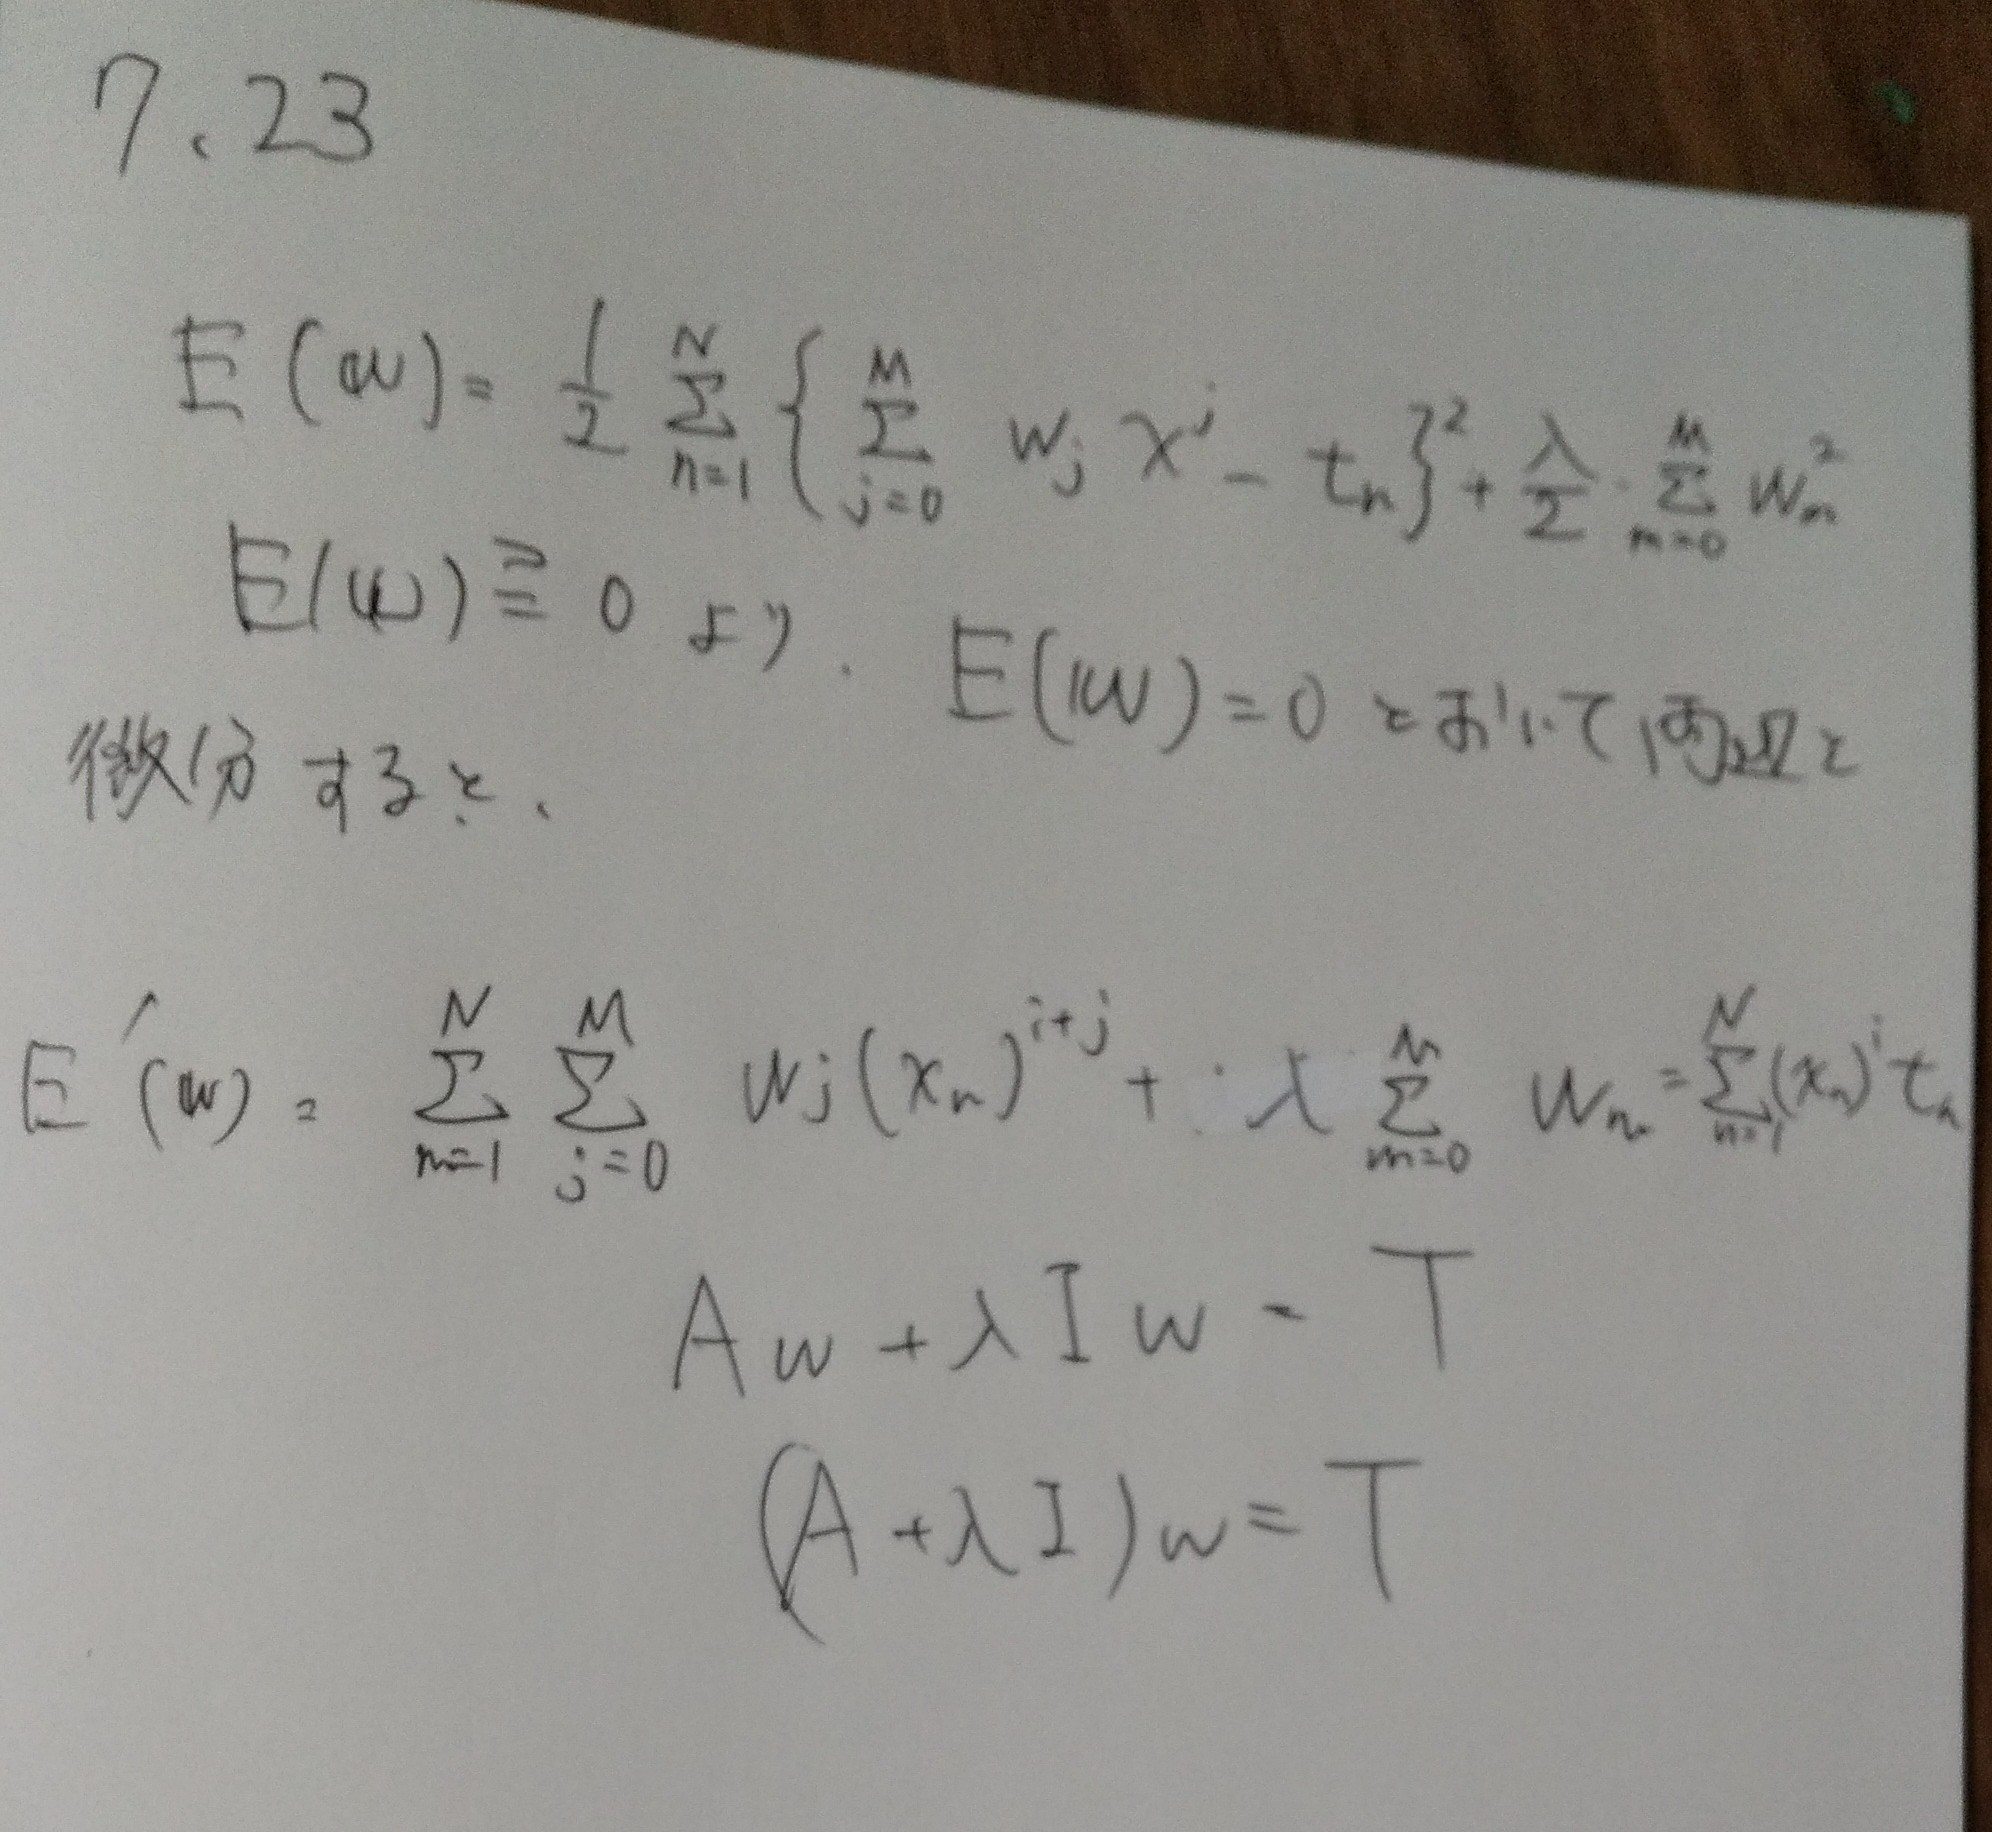 7.23
E(w) = 1/2 Σ_{n=1}^{N} { Σ_{j=0}^{M} w_j x^j - t_n }^2 + λ/2 · Σ_{m=0}^{M} w_m^2
E(w) ≧ 0 より.
E(w) = 0 とおいて両辺を
微分すると、
E'(w) = Σ_{n=1}^{N} Σ_{j=0}^{M} w_j (x_n)^{i+j} + λ Σ_{m=0}^{M} w_m = Σ_{n=1}^{N} (x_n)^i t_n
A w + λ I w - T
(A + λ I) w = T